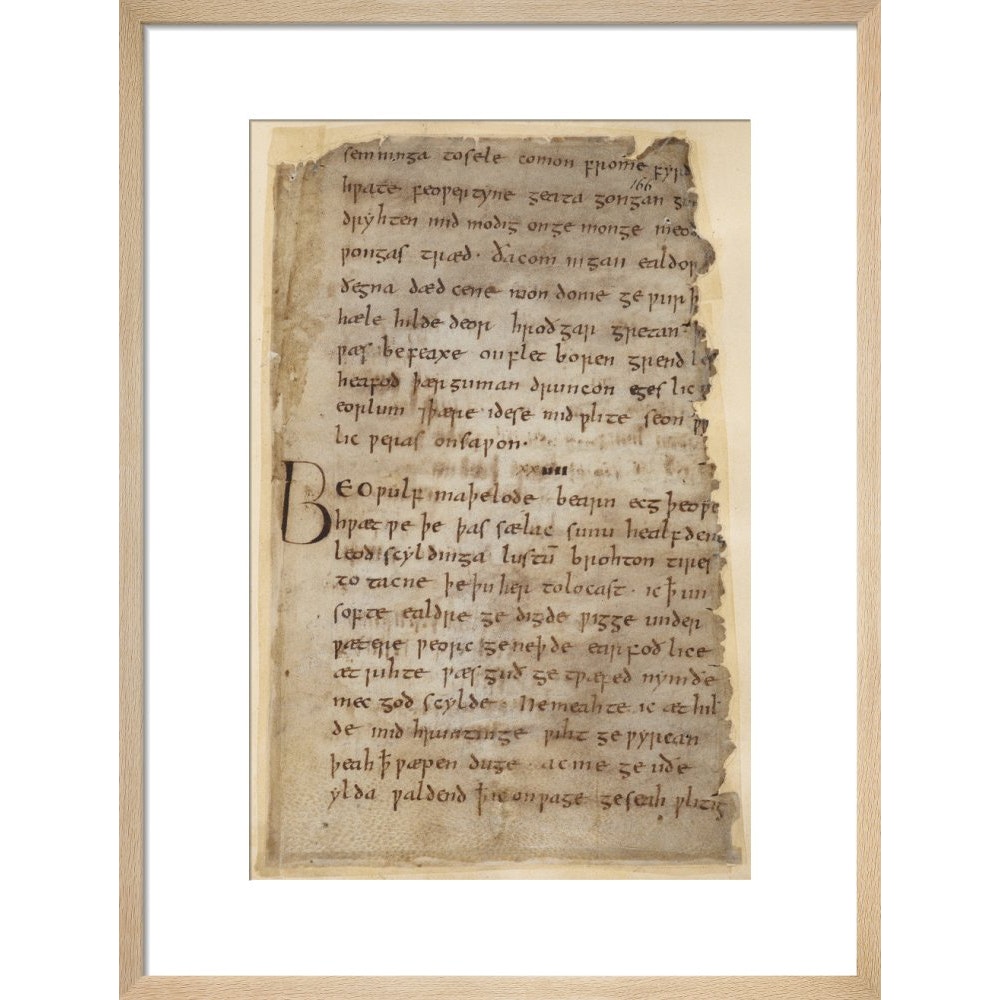 semninga tosele comon frome fyrd
166
hƿate feoƿertyne geata gongan
dryhten mid modig onge monge
ƿongas træd · ða com ingan ealdor
ðegna dæd cene mon dome ge ƿurþ
hæle hilde deor hroðgar gretan
ƿæs be feaxe onflet boren grendle
heafod þær guman druncon eges lic
eorlum ⁊þære idese mid ƿlite seon
lic ƿeras onsaƿon ·
xxiiii
BEOǷULF maþelode bearn ecg þeoƿe
hƿæt ƿe þe þas sælac sunu healfden
leod scyldinga lustū brohton tires
to tacne þe þu her tolocast · ic ꝥ un
softe ealdre ge digde ƿigge under
ƿætere ƿeorc geneþde earfoð lice
æt rihte ƿæs guð ge tƿæfed nymðe
mec god scylde · Ne meahte ic æt hil
de mid hruntinge ƿiht ge ƿyrcan
þeah ꝥ ƿæpen duge · ac me ge uðe
ylda ƿaldend ꝥ ic on ƿage geseah ƿlitig